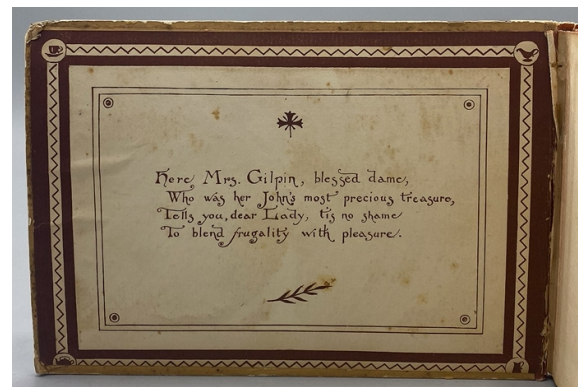 Here Mrs. Gilpin, blessed dame,
Who was her John's most precious treasure,
Tells you, dear Lady, tis no shame
To blend frugality with pleasure.